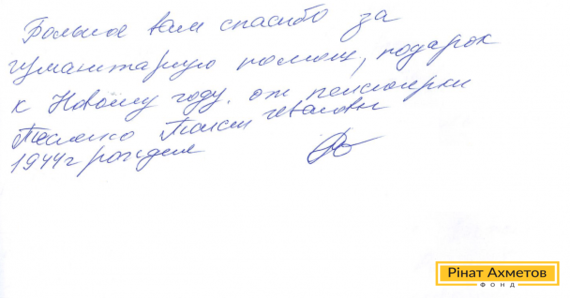 Большое вам спасибо за
гуманитарную помощь, подарок
к Новому году. от пенсионерки
1944г рождения
Рінат Ахметов
ФОНД